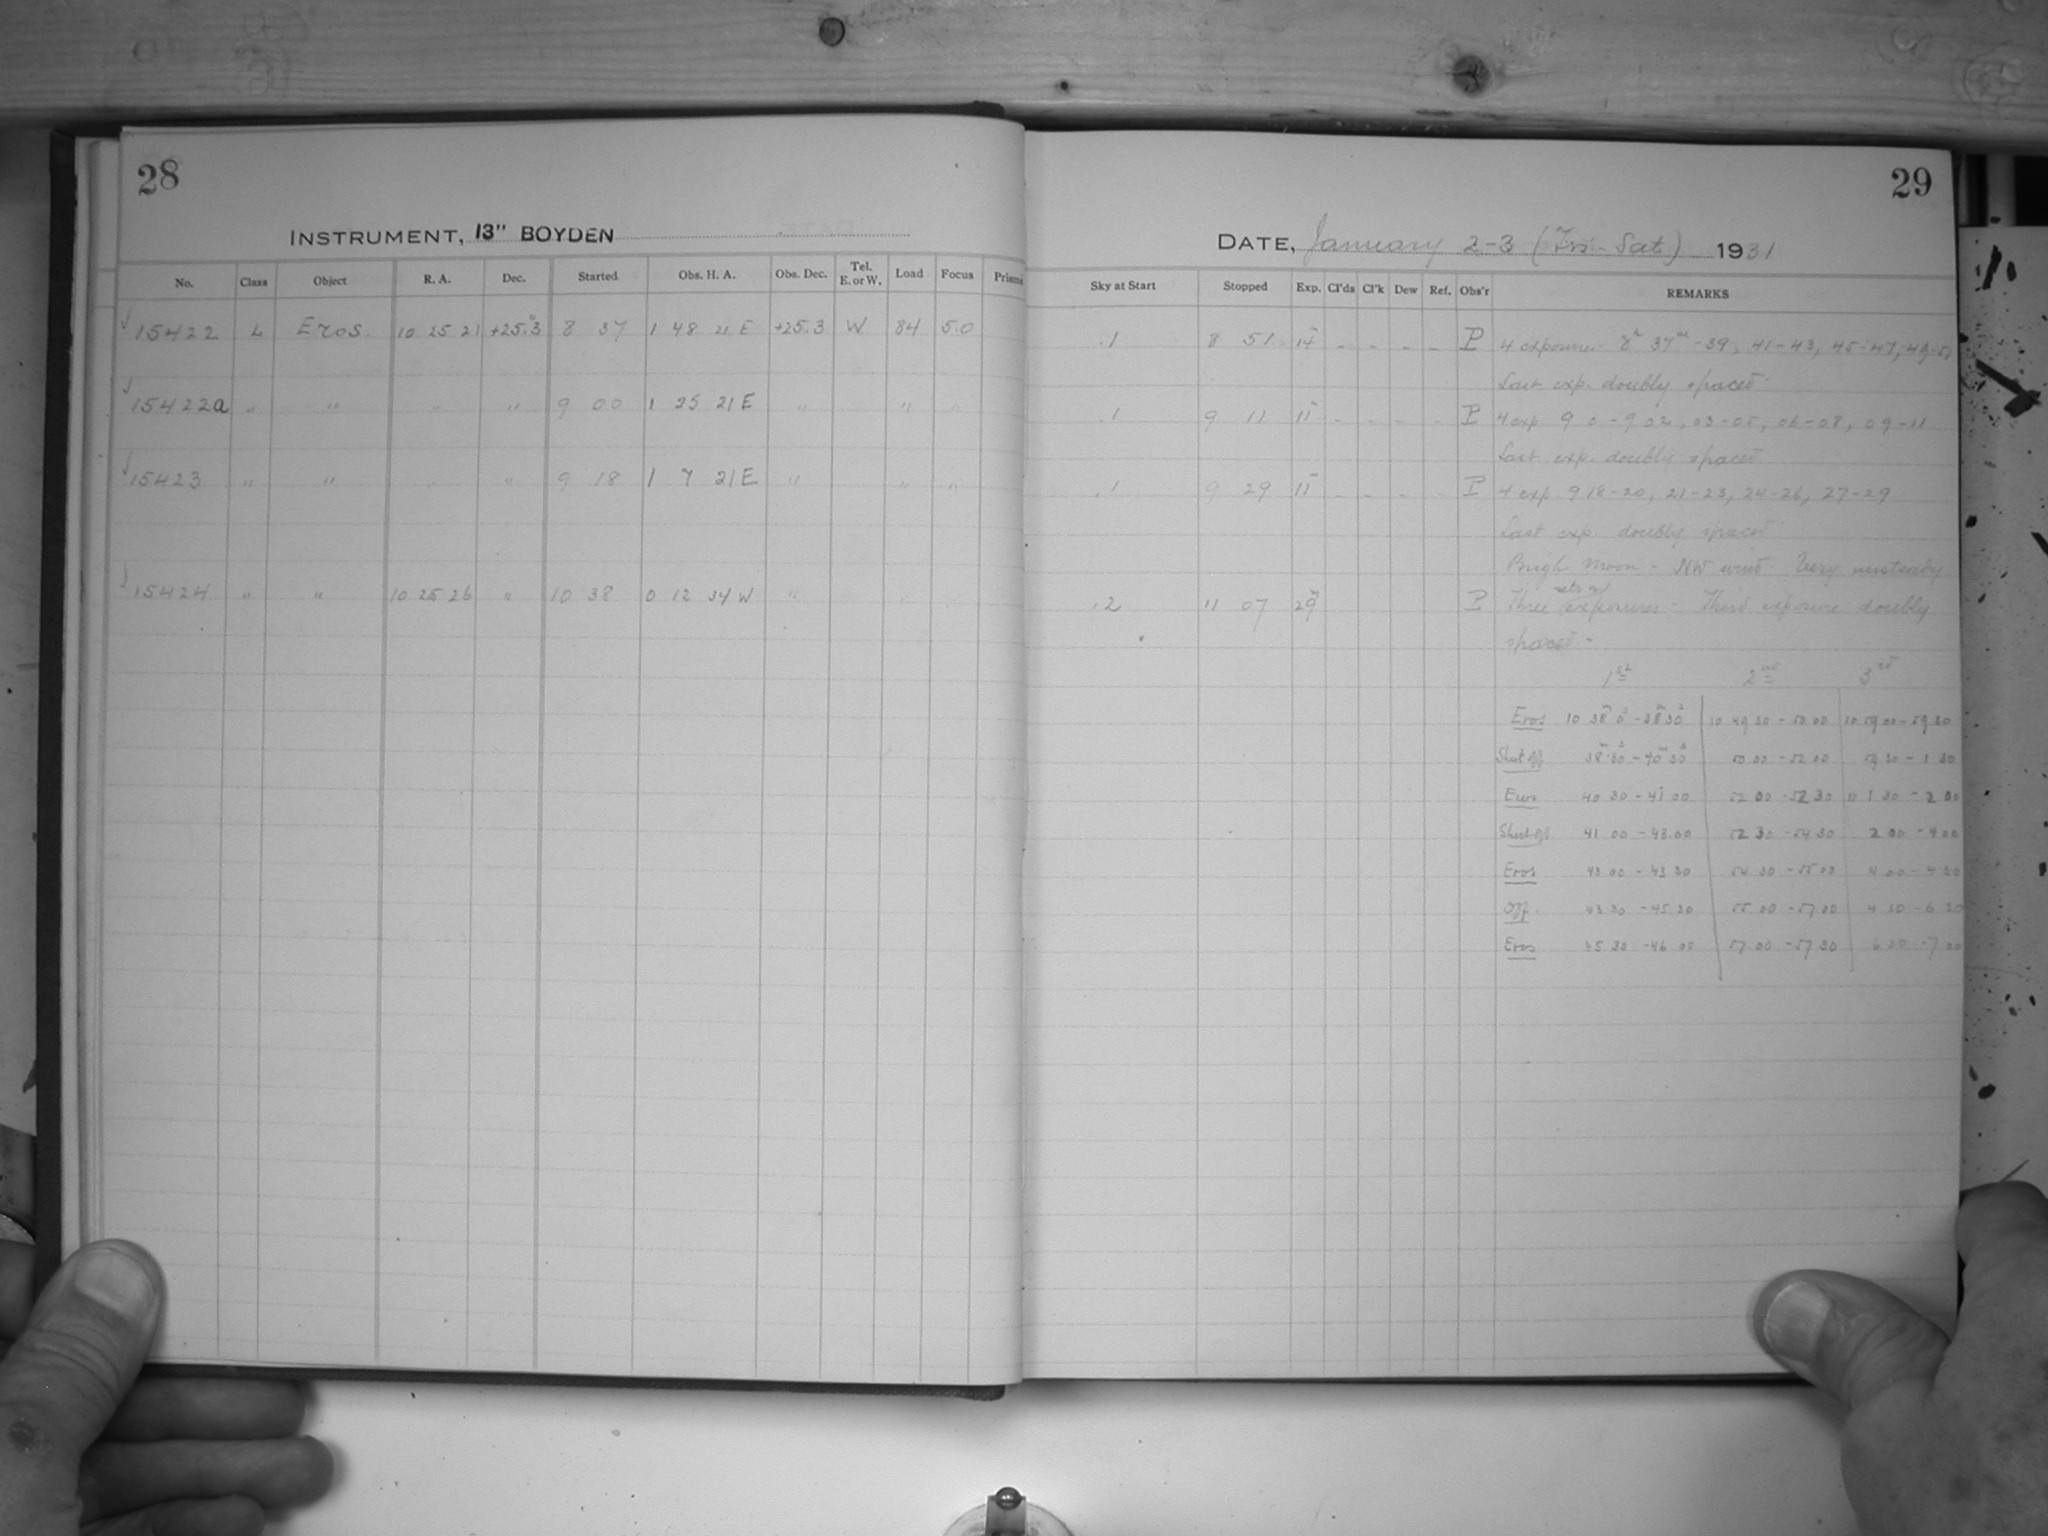 28
INSTRUMENT, 13" BOYDEN
No. Class Object R. A. Dec. Started Obs. H. A. Obs. Dec. Tel. E. or W. Load Focus Prisms
15422 L Eros 10 25 21 +25.3 8 37 1 48 21 E +25.3 W 84 5.0
15422a " " " " 9 00 1 25 21 E " " "
15423 " " " " 9 18 1 7 21 E " " "
15424 " " 10 25 26 " 10 38 0 12 34 W "
29
DATE, January 2-3 (Fri-Sat) 1931
Sky at Start Stopped Exp. Cl'ds Cl'k Dew Ref. Obs'r REMARKS
.1 8 51 14 - - - - P 4 exposures 8h 37m-39, 41-43, 45-47, 49-51
Last exp. doubly spaced
.1 9 11 11 - - - - P 4 exp 9 0-9 02, 03-05, 06-08, 09-11
Last exp. doubly spaced
.1 9 29 11 - - - - P 4 exp 9 18-20, 21-23, 24-26, 27-29
Last exp. doubly spaced
Brigh Moon - NW wind - Very unsteady
.2 11 07 29 P Three sets of exposures - Third exposure doubly
spaced -
1st 2nd 3rd
Eros 10 38m 0s - 38m 30s 10 49 30 - 50.00 10 59 00 - 59 30
Shut off 38m 30s - 40m 30s 50 00 - 52 00 59 30 - 1 30
Eros 40 30 - 41 00 52 00 - 52 30 11 1 30 - 2 00
Shut off 41 00 - 43.00 52 30 - 54 30 2 00 - 4 00
Eros 43 00 - 43 30 54 30 - 55 00 4 00 - 4 30
Off 43 30 - 45.30 55 00 - 57 00 4 30 - 6 30
Eros 45 30 - 46 00 57 00 - 57 30 6 30 - 7 00